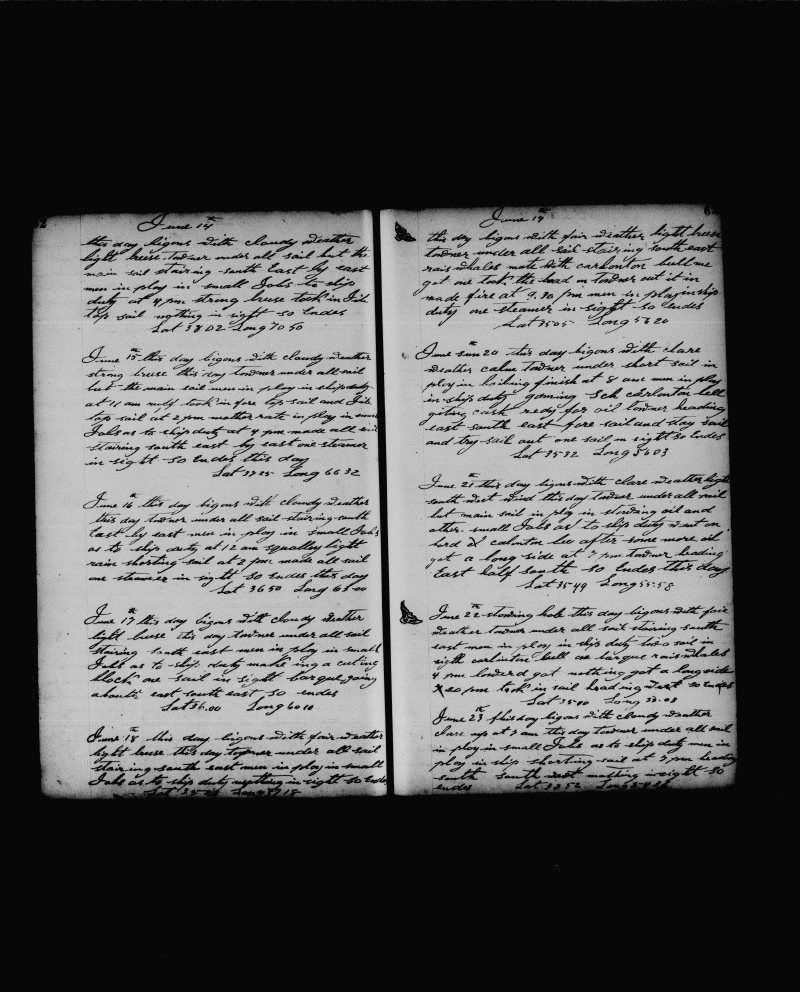 June 14th
this day bigons with cloudy weather
light breese towner under all sail but the
main sail stairing south East by east
men in ploy in small Jobs to ship
duty at 4 pm strong breese took in Jib
top sail nothing in sight so endes
Lat 38 02 Long 70 50
June 15th this day bigons with cloudy weather
strong breese this day towner under all sail
but the main sail men in ploy in shipduty
at 11 am took in fore top sail and Jib
top sail at 2 pm in ploy in small
Jobs as to ship duty at 4 pm made all sail
stairing south east by east one steamer
in sight so endes this day
Lat 37 25 Long 66 32
June 16th this day bigons with cloudy weather
this day towner under all sail stairing south
East by east men in ploy in small Jobs
as to ship duty at 12 am squalley light
rain shorting sail at 2 pm made all sail
one steamer in sight so endes this day
Lat 36 50 Long 63 00
June 17th this day bigons with cloudy weather
light breese this day towner under all sail
stairing south east men in ploy in small
Jobs as to ship duty making a cuting
block one sail in sight barque going
about east south east so endes
Lat 36.00 Long 60 10
June 18th this day bigons with fair weather
light breese this day towner under all sail
stairing south east men in ploy in small
Jobs as to ship duty nothing in sight so endes
Lat 35 Long 18
June 19th
this day bigons with fair weather light breese
towner under all sail stairing south east
rais whales mate with carlonton bell me
got one took the head on towner cut it in
made fire at 9.30 pm men in ploy in ship
duty one steamer in sight so endes
Lat 35 05 Long 56 20
June sun 20th this day bigons with clare
weather calm towner under short sail in
ploy in boiling finish at 8 am men in ploy
in ship duty gaming Sch carlonton bell
giting cask redy for oil towner heading
east south east fore sail and day sail
and try sail out one sail in sight so endes
Lat 35-32 Long 56 03
June 21th this day bigons with clare weather light
south west wind this day towner under all sail
but main sail in ploy in stowing oil and
other small Jobs as to ship duty went on
bord of carlonton bell after some more oil
got a long side at 7 pm towner heading
East half south so endes this day
Lat 35-49 Long 55-58
June 22th stowing hole this day bigons with fair
weather towner under all sail stairing south
east men in ploy in ship duty too sail in
sigth carlinton bell an barque rais whales
4 pm lowerd got nothing got a longside
30 pm took in sail heading West so endes
Lat 35-00 Long 55-03
June 23th this day bigons with cloudy weather
clare up at 7 am this day towner under all sail
in ploy in small Jobs as to ship duty men in
ploy in ship shorting sail at 7 pm heading
south south west nothing in sight so
endes Lat 33 52 Long